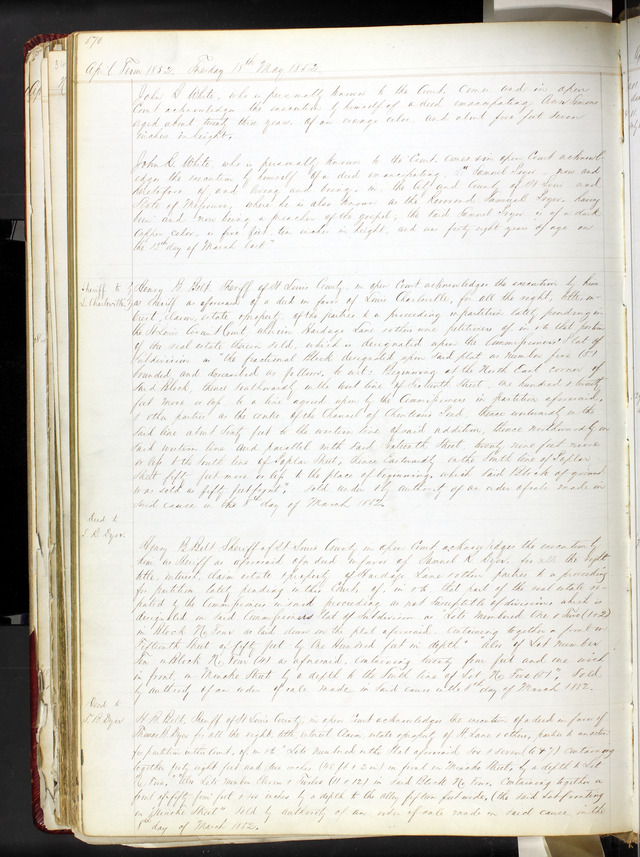 570
Apl Term 1852. Tuesday 18th May 1852
John S White, who is personally known to the Court, comes and in open
Court acknowledges the execution by himself of a deed emancipating
aged about twenty three years, of an orange color and about five feet seven
inches in height.
John S. White, who is personally known to the Court comes & in open Court acknowl
edges the execution by himself of a deed emancipating "Samuel now and
heretofore of and living and being in the City and County of St Louis and
State of Missouri, where he is also known as the Reverend Samuel having
been and now being a preacher of the gospel; the said Samuel is of a dark
copper color, is five feet ten inches in height, and is forty eight years of age on
the 12th day of March last"
Sheriff to
L. Charleville
Henry B Belt Sheriff of St Louis County, in open Court acknowledges the execution by him
as Sheriff as aforesaid of a deed in favor of Louis Charleville, for all the right, title, in-
terest, claim, estate & property of the parties to a proceeding in partition lately pending in
the St Louis Circuit Court wherein Hardage Lane & others were petitioners of in & to that portion
of the real estate therein sold, which is designated upon the Commissioners Plat of
Subdivision as "the fractional Block designated upon said plat as number five (5)
bounded and described as follows, to wit: Beginning at the North East corner of
said Block, thence southwardly in the west line of Sixteenth Street, one hundred & twenty
feet more or less to a line agreed upon by the Commissioners in partition aforesaid
& other parties as the center of the Channel of Chouteaus Pond, thence westwardly in the
said line about sixty feet to the western line of said addition, thence northwardly in
said western line and parallel with said sixteenth Street twenty nine feet more
or less to the South line of Poplar Street, thence Eastwardly in the South line of Poplar
Street fifty feet more or less to the place of beginning, which said Block of ground
was sold as fifty feet front"; sold under & by authority of an order of sale made in
said cause on the 8th day of March 1852.
Deed to
S. R. Dyer.
Henry B Belt Sheriff of St Louis County in open Court acknowledges the execution by
him as Sheriff as aforesaid of a deed in favor of Samuel R Dyer for all the right
title, interest, claim estate & property of Hardage Lane & other parties to a proceeding
for partition lately pending in this Court, of, in & to that part of the real estate re-
ported by the Commissioners in said proceeding as not susceptible of division which is
designated in said Commissioners Plat of Subdivision as "Lots Numbered One & Two (1 & 2)
in Block No Four as laid down on the plat aforesaid, containing together a front on
Fifteenth Street of fifty feet by One Hundred feet in depth" Also of Lot Number
Ten in Block No Four (4) as aforesaid, containing twenty four feet and one inch
in front on Manske Street by a depth to the South line of Lot No Two (2)", Sold
by authority of an order of sale made in said cause on the 8th day of March 1852.
Deed to
T. B. Dyer
H. B. Belt Sheriff of St Louis County, in open Court acknowledges the execution of a deed in favor of
Thomas B. Dyer for all the right, title interest claim estate & property of H Lane & others, parties to an action
for partition in this Court, of, in & to "Lots Numbered in the Plat aforesaid Six & Seven (6 & 7) containing
together forty eight feet and two inches (48 ft & 2 in) in front on Manske Street, by a depth to Lot
"Also Lots number Eleven & Twelve (11 & 12) in said Block No Four, containing together a
front of fifty four feet & six inches by a depth to the alley fifteen feet wide, (the said Lots fronting
on Manske Street" Sold by authority of an order of sale made in said cause on the
8th day of March 1852.